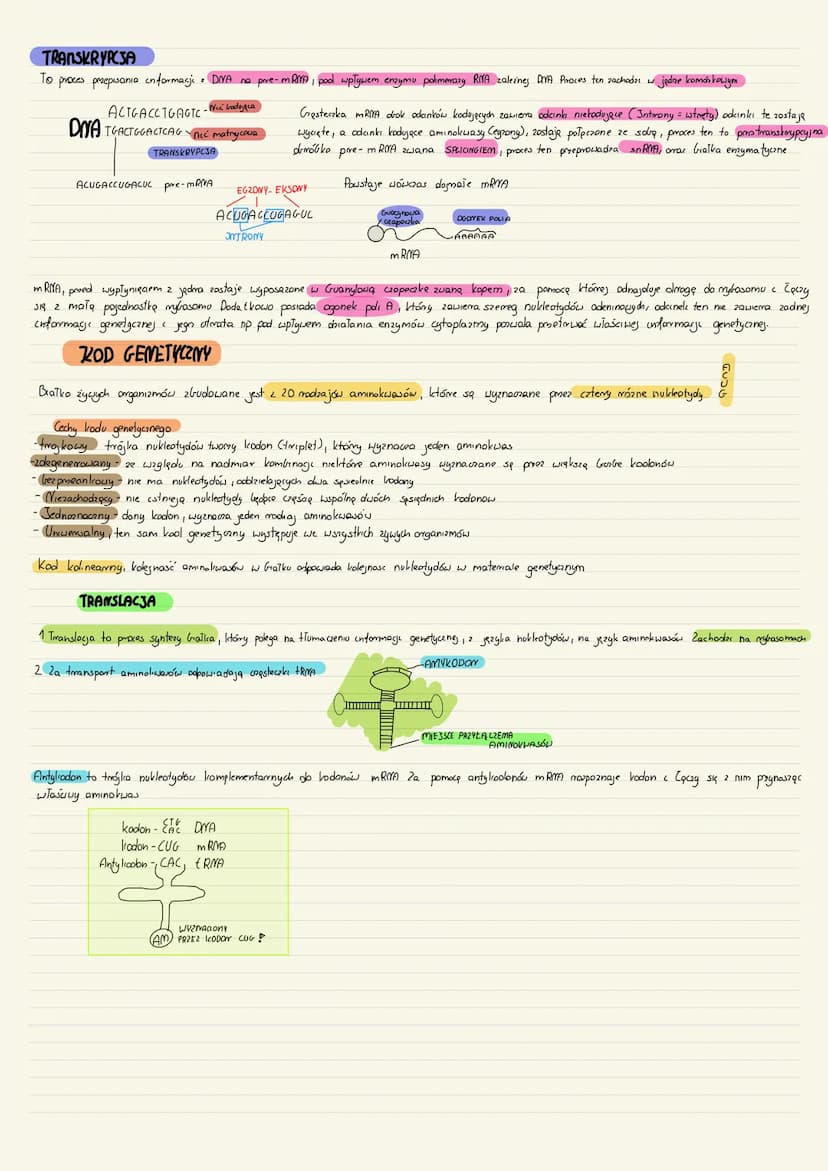 TRANSKRYPCJA
To proces przepisania informacji z DNA na pre-mRNA, pod wpływem enzymu polimerazy RNA zależnej DNA. Proces ten zachodzi w jądrze komórkowym
ACTGACCTGAGTC - Nić kodująca
DNA TGACTGGACTCAG - Nić matrycowa
TRANSKRYPCJA
ACUGACCUGACUC pre-mRNA
Cząsteczka mRNA obok odcinków kodujących zawiera odcinki niekodujące (Introny = wtręty) odcinki te zostają
wycięte, a odcinki kodujące aminokwasy (egzony), zostają połączone ze sobą, proces ten to postranskrypcyjna
obróbka pre-mRNA zwana SPLICINGIEM, proces ten przeprowadza snRNA, oraz białka enzymatyczne
EGZONY - EKSONY
ACUGACCUGAGUC
INTRONY
Powstaje wówczas dojrzałe mRNA
Guanylowa czapeczka
OGONEK POLI A
AAAAAA
mRNA
mRNA, przed wypłynięciem z jądra zostaje wyposażone w Guanylową czapeczkę zwaną kapem, za pomocą której odnajduje drogę do rybosomu i łączy
się z małą podjednostką rybosomu Dodatkowo posiada ogonek poli A, który zawiera szereg nukleotydów adeninowych, odcinek ten nie zawiera żadnej
informacji genetycznej i jego utrata np pod wpływem działania enzymów cytoplazmy pozwala przetrwać właściwej informacji genetycznej.
KOD GENETYCZNY
Białko żywych organizmów zbudowane jest z 20 rodzajów aminokwasów, które są wyznaczane przez cztery różne nukleotydy
A C U G
Cechy kodu genetycznego
- trójkowy trójka nukleotydów tworzy kodon (triplet), który wyznacza jeden aminokwas
- zdegenerowany - ze względu na nadmiar kombinacji niektóre aminokwasy wyznaczane są przez większą liczbę kodonów
- bezprzecinkowy - nie ma nukleotydów, oddzielających dwa sąsiednie kodony
- Niezachodzący - nie istnieją nukleotydy będące częścią wspólną dwóch sąsiednich kodonów
- Jednoznaczny - dany kodon, wyznacza jeden rodzaj aminokwasów
- Uniwersalny, ten sam kod genetyczny występuje we wszystkich żywych organizmów
Kod kolinearny, kolejność aminokwasów w białku odpowiada kolejność nukleotydów w materiale genetycznym
TRANSLACJA
1 Translacja to proces syntezy białka, który polega na tłumaczeniu informacji genetycznej, z języka nukleotydów, na język aminokwasów Zachodzi na rybosomach
2 Za transport aminokwasów odpowiadają cząsteczki tRNA
ANTYKODON
MIEJSCE PRZYŁĄCZENIA
AMINOKWASÓW
Antykodon to trójka nukleotydów komplementarnych do kodonów mRNA Za pomocą antykodonów mRNA rozpoznaje kodon i łączy się z nim przynosząc
właściwy aminokwas
kodon - CTG GAC DNA
kodon - CUG mRNA
Antykodon - CAC, tRNA
AM
WYZNACZONY
PRZEZ KODON CUG!